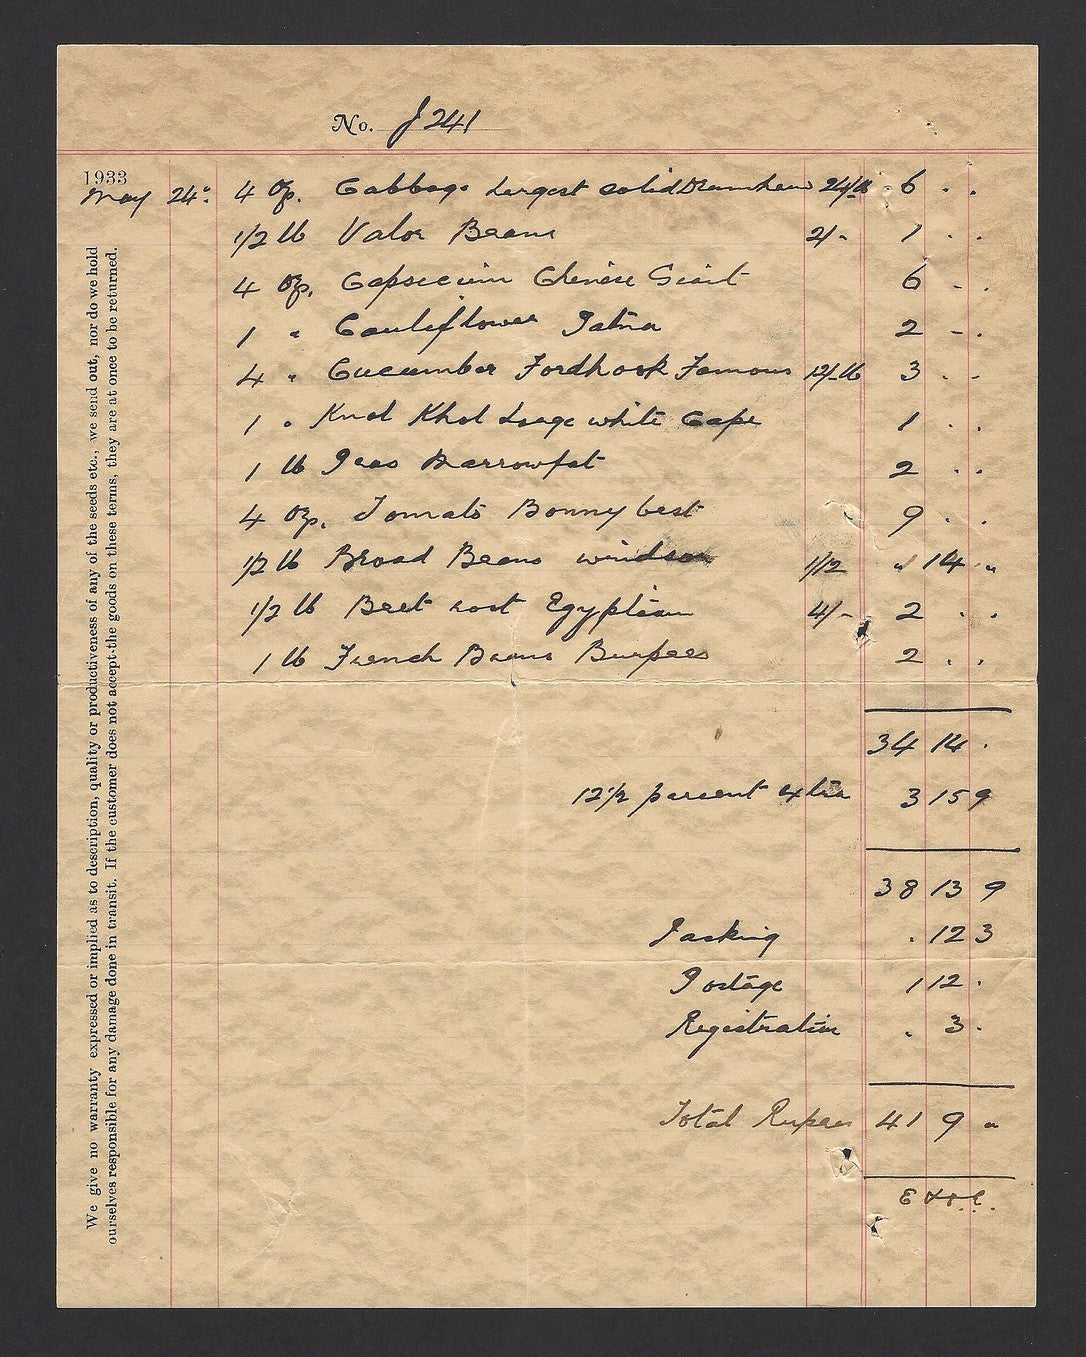 No. J 241
1933
May 24: 4 Oz. Cabbage Largest solid Drumhead 24/lb 6 . .
1/2 lb Valor Beans 2/- 1 . .
4 Oz. Capsecium Chenese Giant 6 - .
1 " Cauliflower Patna 2 - .
4 " Cucumber Fordhook Famous 12/-lb 3 . .
1 " Knol Khol Large white Cape 1 . .
1 lb Peas Marrowfat 2 . .
4 Oz. Tomato Bonny best 9 . .
1/2 lb Broad Beans windsor 1/12 " 14 "
1/2 lb Beet root Egyptian 4/- 2 . .
1 lb French Beans Burpees 2 . .
34 14 .
12 1/2 percent extra 3 15 9
38 13 9
Packing . 12 3
Postage 1 12 .
Registration . 3 .
Total Rupees 41 9 "
E & O. E.
We give no warranty expressed or implied as to description, quality or productiveness of any of the seeds etc., we send out, nor do we hold
ourselves responsible for any damage done in transit. If the customer does not accept the goods on these terms, they are at once to be returned.